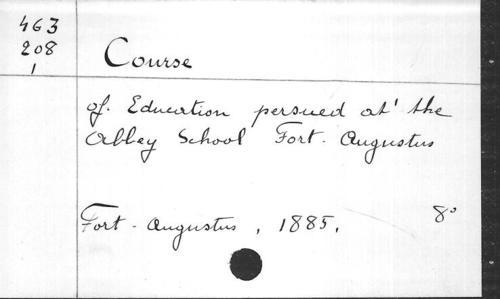 463
208
1
Course
of. Education persued at the
Abbey School Fort. Augustus
Fort. Augustus, 1885. 8°